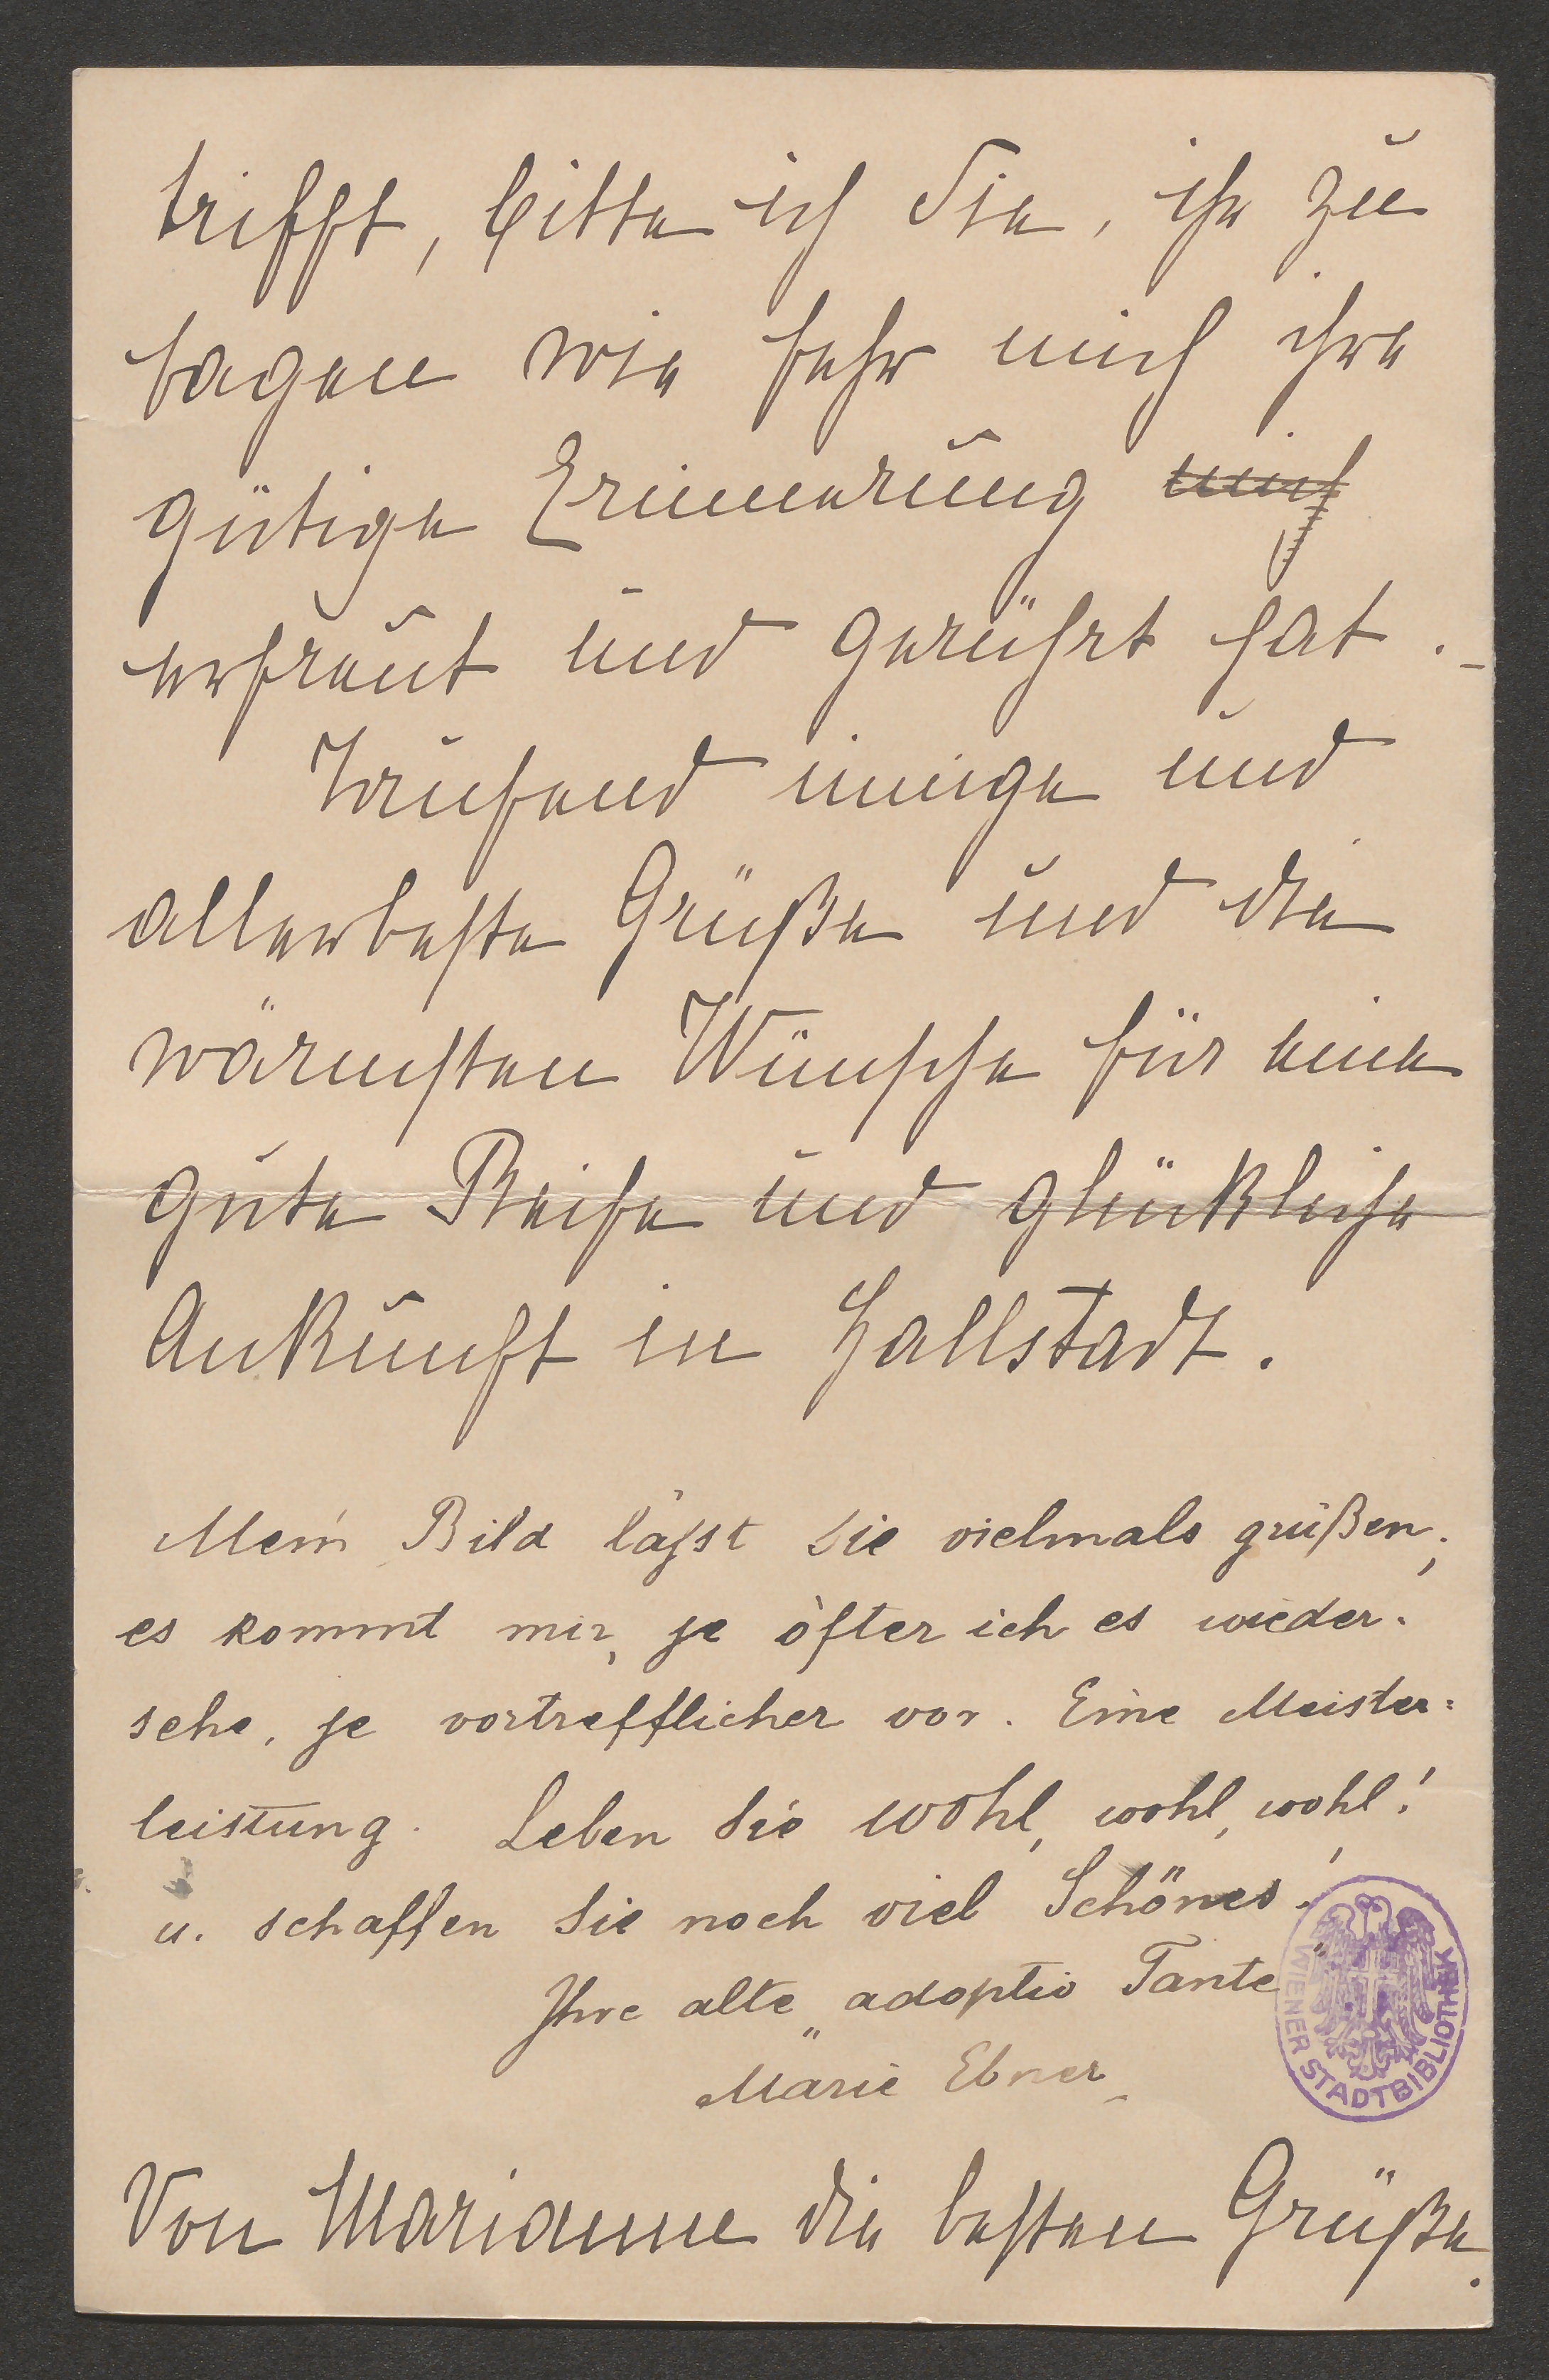 trifft, bitte ich Sie, ihr zu
sagen wie sehr mich ihre
gütige Erinnerung mich
erfreut und gerührt hat.–
Tausend innige und
allerbeste Grüße und die
wärmsten Wünsche für eine
gute Reise und glückliche
Ankunft in Hallstadt.
Mein Bild läßst Sie vielmals grüßen;
es kommt mir, je öfter ich es wieder-
sehe, je vortrefflicher vor. Eine Meister=
leistung. Leben Sie wohl, wohl, wohl!
u. schaffen Sie noch viel Schönes!
Ihre alte „adoptiv Tante"
Marie Ebner
Von Marianne die besten Grüße.
WIENER STADTBIBLIOTHEK